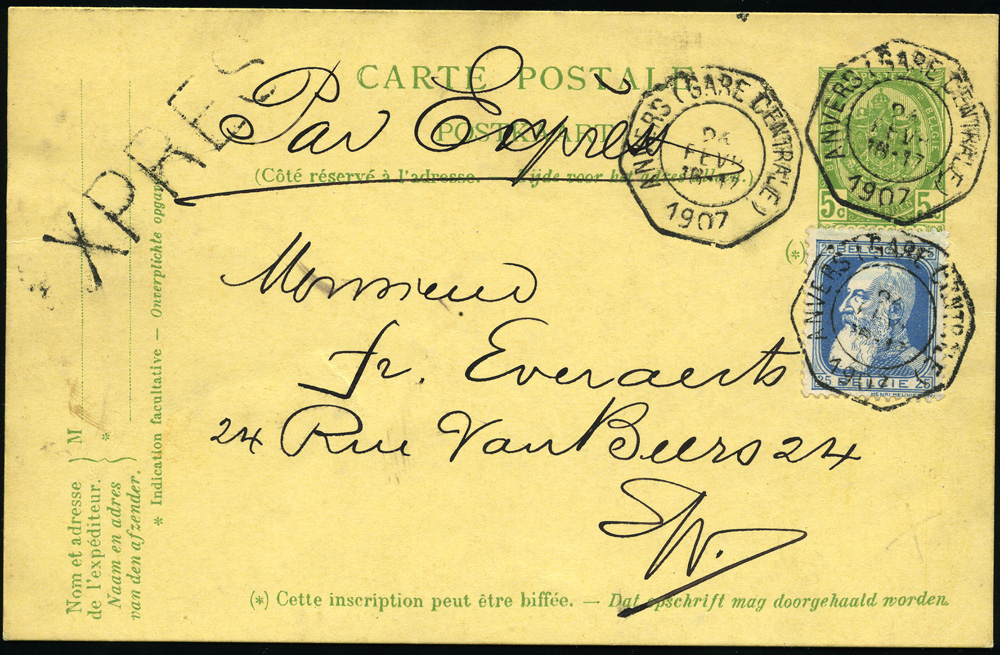 CARTE POSTALE
POSTKAART
(Côté réservé à l'adresse. Zijde voor het adres alleen.)
Par Exprès
XPRES
ANVERS (GARE CENTRALE)
24
FEVR
1907
ANVERS (GARE CENTRALE)
24
1907
5c 5c
(*)
25 BELGIQUE 25
ANVERS (GARE CENTRALE)
24
1907
25 BELGIË 25
Monsieur
Fr. Everaerts
24 Rue Van Beers 24
(*) Cette inscription peut être biffée. — Dat opschrift mag doorgehaald worden.
Nom et adresse
de l'expéditeur.
Naam en adres
van den afzender.
} M
*
* Indication facultative — Onverplichte opgaaf